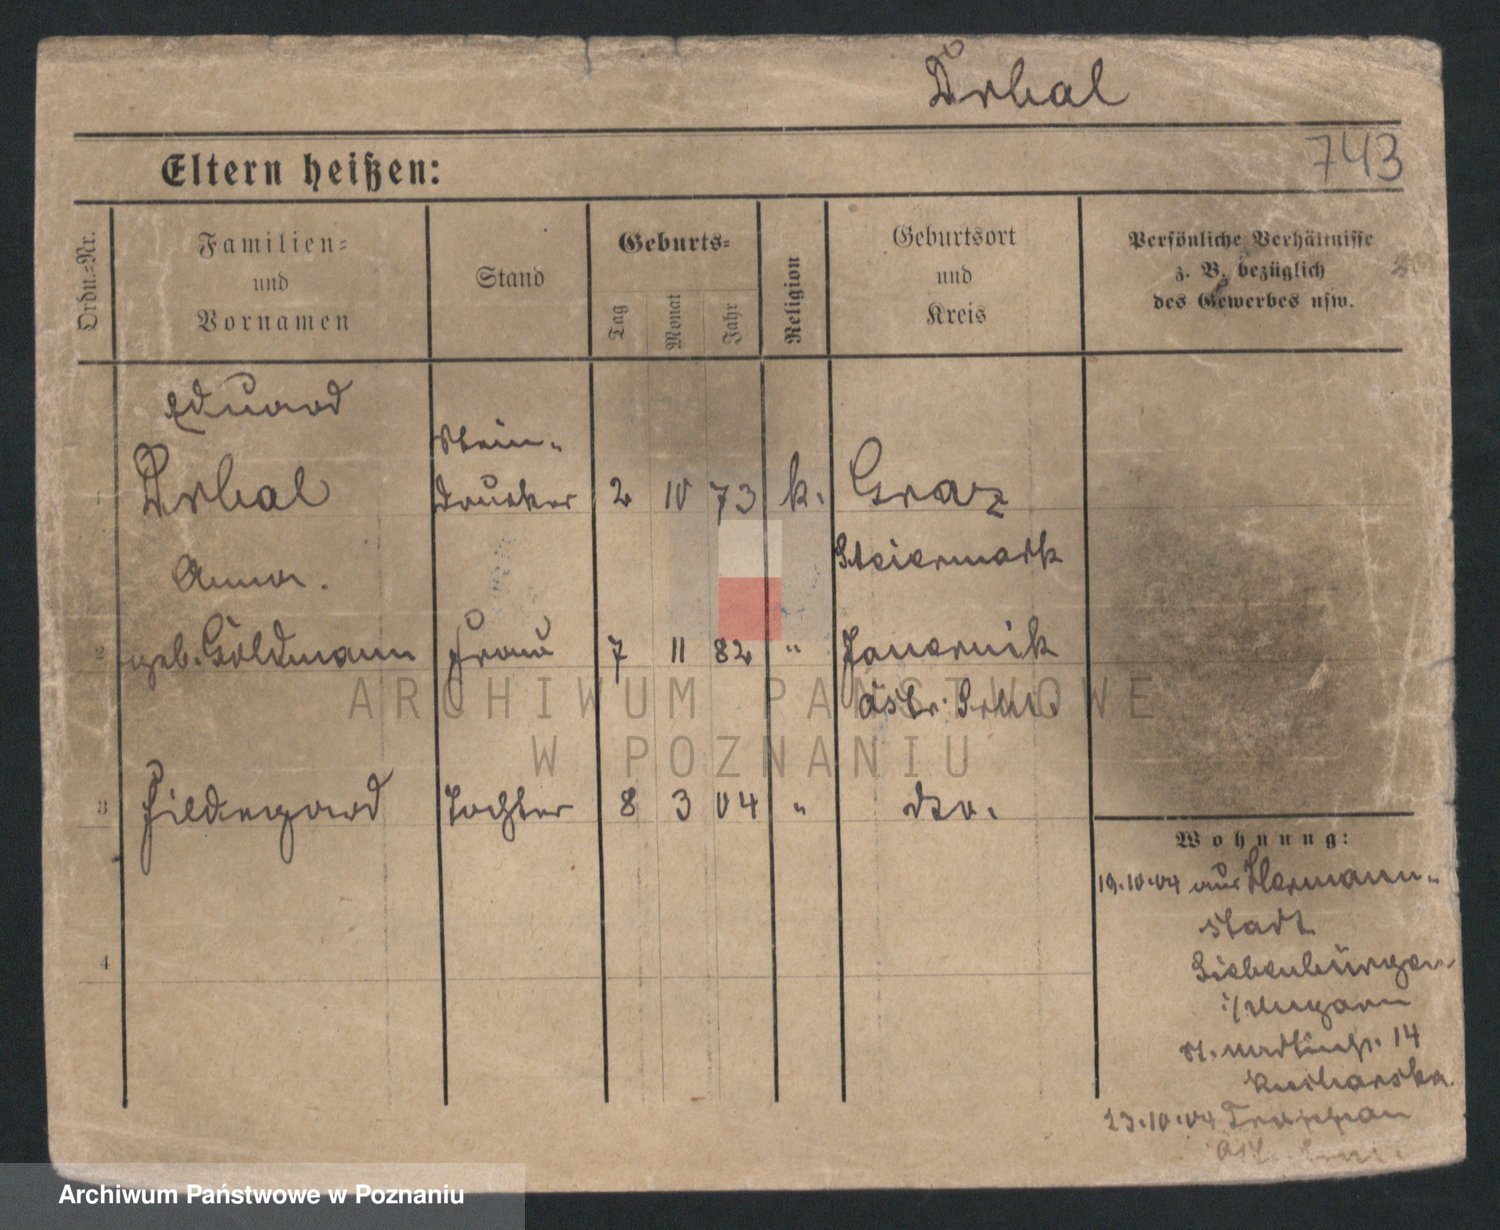 Drbal
743
Eltern heißen:
Ordn.-Nr.
Familien-
und
Vornamen
Stand
Geburts-
Tag
Monat
Jahr
Religion
Geburtsort
und
Kreis
Persönliche Verhältnisse
z. B. bezüglich
des Gewerbes usw.
Eduard
Stein-
1 Drbal drucker 2 10 73 k. Graz
Steiermark
Anna.
2 geb. Göldmann Frau 7 11 82 " Jauernik
Östr. Schl.
3 Hildegard Tochter 8 3 04 " do.
4
Wohnung:
19.10.04 aus Hermann-
stadt
Siebenbürgen
i/Ungarn
St. Martinstr. 14
Kucharska
23.10.04 Troppau
ARCHIWUM PAŃSTWOWE
W POZNANIU
Archiwum Państwowe w Poznaniu